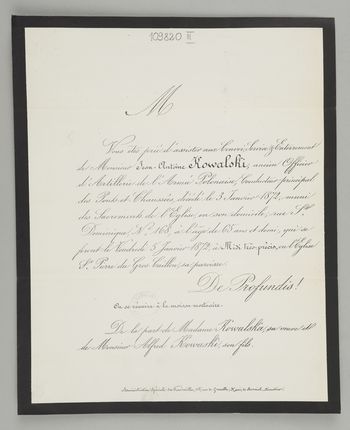 109820 II
M
Vous êtes prié d'assister aux Convoi, Service & Enterrement
de Monsieur Jean-Antoine Kowalski, ancien Officier
d'Artillerie de l'Armée Polonaise, Conducteur principal
des Ponts et Chaussées, décédé le 3 Janvier 1872, muni
des Sacrements de l'Eglise, en son domicile, rue St.
Dominique, No. 168, à l'âge de 65 ans et demi; qui se
feront le Vendredi 5 Janvier 1872, à Midi très-précis, en l'Eglise
St. Pierre du Gros Caillou, sa paroisse.
De Profundis!
On se réunira à la maison mortuaire.
De la part de Madame Kowalska, sa veuve et
de Monsieur Alfred Kowalski, son fils.